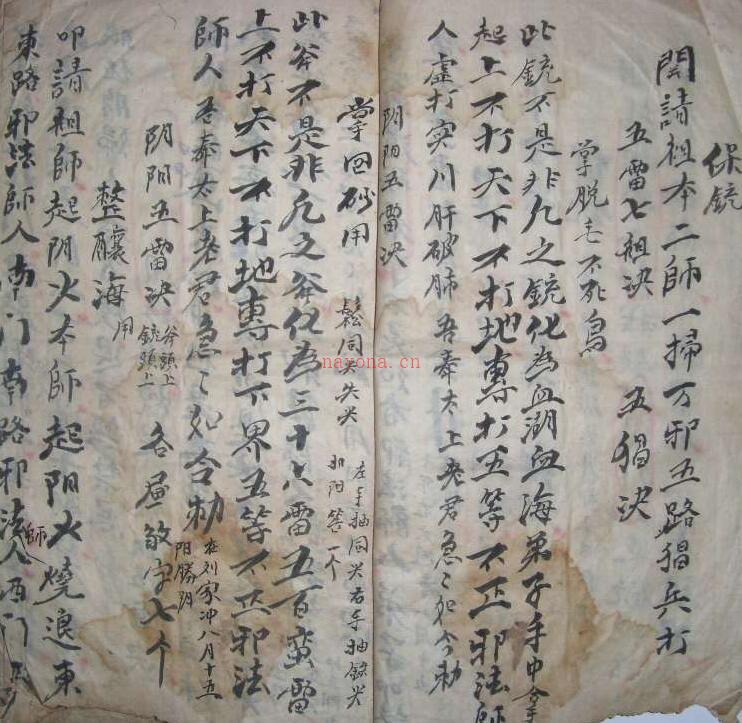 保銃
開請祖本二師一掃万邪五路猖兵打
五雷七祖决 五猖决
掌脱毛不死鳥
此銃不是非凡之銃化為血湖血海弟子手中拿
起上不打天下不打地專打五等不正邪法師
人虚打实川肝破肺吾奉太上老君急〻如令勅
阴阳五雷决
掌回砂用 同尖失尖
左手抽同尖右手抽 尖
阳 一个
此斧不是非凡之斧化為三十六雷五百蛮雷
上不打天下不打地專打下界五等不正邪法
師人吾奉太上老君急〻如令勅 在刘家冲八月十五
阳勝阴
阴阳五雷决 斧頭上 銃頭上 各 字七个
整 海 用
叩請祖師起阴火本師起阳火燒退東
東路邪法師人南门南路邪法師人西门
nayona.cn